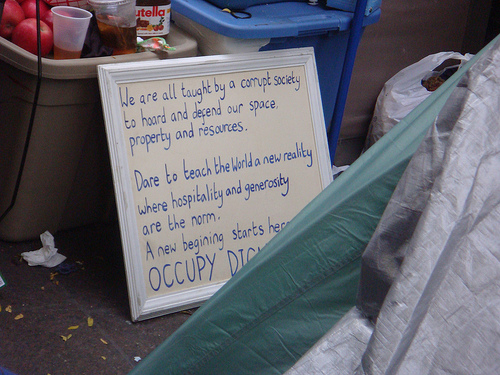 utella
We are all taught by a corrupt society
to hoard and defend our space,
property and resources.
Dare to teach the World a new reality
where hospitality and generosity
are the norm.
A new begining starts here
OCCUPY